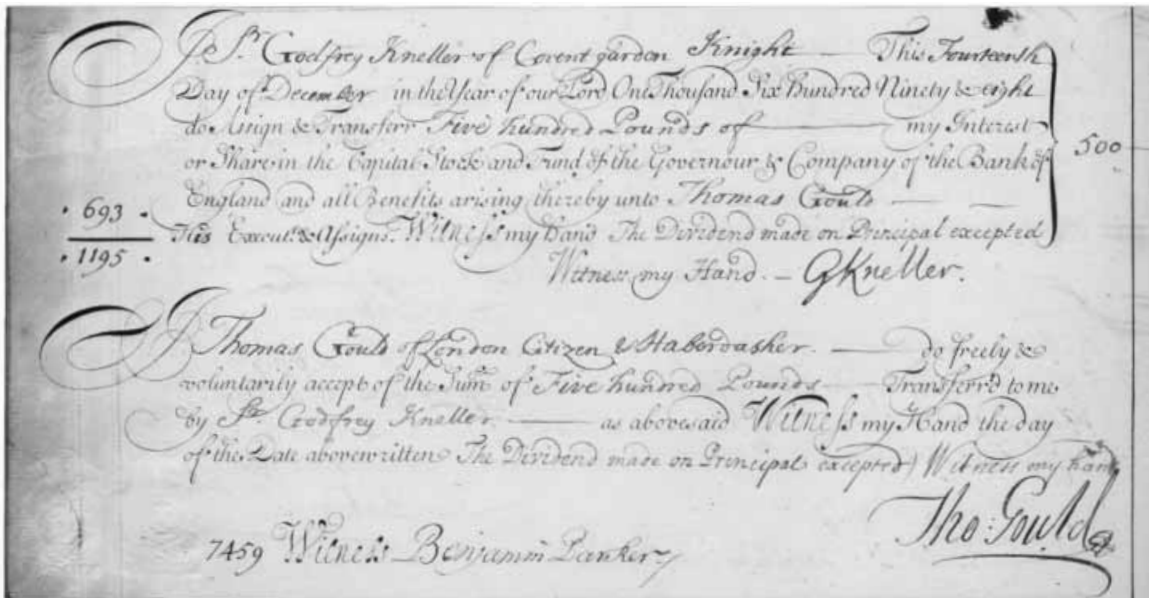 I Sr. Godfrey Kneller of Covent garden Knight — This Fourteenth
Day of December in the Year of our Lord One Thousand Six Hundred Ninety & eight
do Assign & Transferr Five hundred Pounds of — my Interest
or Share in the Capital Stock and Fund of the Governour & Company of the Bank of
England and all Benefits arising thereby unto Thomas Gould — —
His Execut.rs & Assigns. Witness my hand The Dividend made on Principal excepted
Witness my Hand. — GKneller.
500
693
1195
I Thomas Gould of London Citizen & Haberdasher. — do freely &
voluntarily accept of the Sum of Five hundred Pounds — Transferr'd to me
by Sr. Godfrey Kneller. — as abovesaid Witness my Hand the day
of the Date abovewritten The Dividend made on Principal excepted) Witness my hand
Tho: Gould
7459 Witness Benjamin Banker